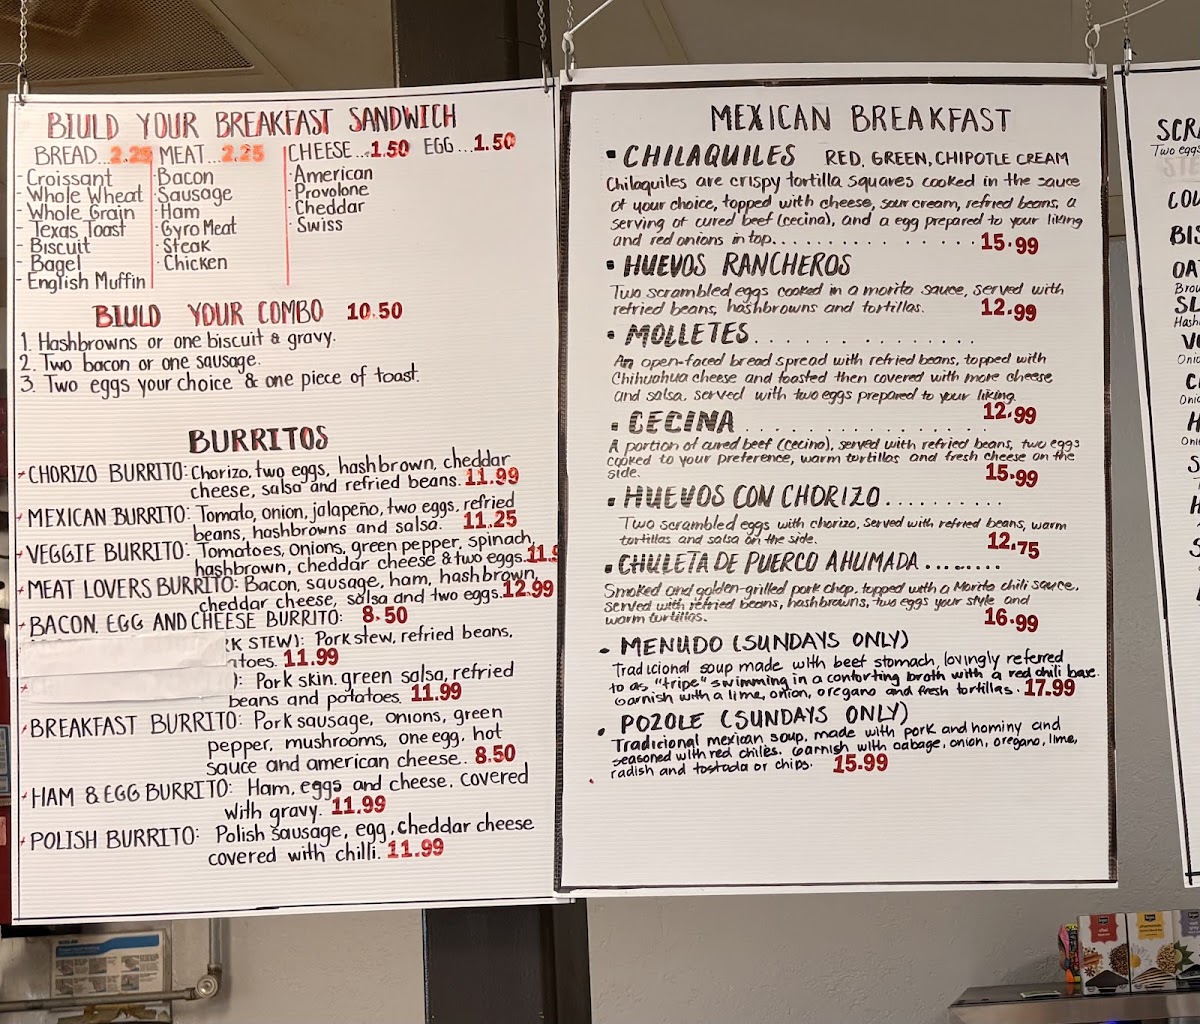 BIULD YOUR BREAKFAST SANDWICH
BREAD...2.25 MEAT...2.25 CHEESE...1.50 EGG...1.50
- Croissant
- Whole Wheat
- Whole Grain
- Texas Toast
- Biscuit
- Bagel
- English Muffin
· Bacon
· Sausage
· Ham
· Gyro Meat
· Steak
· Chicken
· American
· Provolone
· Cheddar
· Swiss
BIULD YOUR COMBO 10.50
1. Hashbrowns or one biscuit & gravy.
2. Two bacon or one sausage.
3. Two eggs your choice & one piece of toast.
BURRITOS
CHORIZO BURRITO: Chorizo, two eggs, hashbrown, cheddar
cheese, salsa and refried beans. 11.99
MEXICAN BURRITO: Tomato, onion, jalapeño, two eggs, refried
beans, hashbrowns and salsa. 11.25
VEGGIE BURRITO: Tomatoes, onions, green pepper, spinach,
hashbrown, cheddar cheese & two eggs.
MEAT LOVERS BURRITO: Bacon, sausage, ham, hashbrown,
cheddar cheese, salsa and two eggs. 12.99
BACON, EGG AND CHEESE BURRITO: 8.50
STEW): Pork stew, refried beans,
11.99
): Pork skin, green salsa, refried
beans and potatoes. 11.99
BREAKFAST BURRITO: Pork sausage, onions, green
pepper, mushrooms, one egg, hot
sauce and american cheese.. 8.50
HAM & EGG BURRITO: Ham, eggs and cheese, covered
with gravy. 11.99
POLISH BURRITO: Polish sausage, egg, cheddar cheese
covered with chilli. 11.99
MEXICAN BREAKFAST
CHILAQUILES RED, GREEN, CHIPOTLE CREAM
Chilaquiles are crispy tortilla squares cooked in the sauce
of your choice, topped with cheese, sour cream, refried beans, a
serving of cured beef (cecina), and a egg prepared to your liking
and red onions in top. . . . . . . . . . . . . . . 15.99
HUEVOS RANCHEROS
Two scrambled eggs cooked in a morita sauce, served with
refried beans, hashbrowns and tortillas. 12.99
MOLLETES. . . . . . . . . . . . . . .
An open-faced bread spread with refried beans, topped with
Chihuahua cheese and toasted then covered with more cheese
and salsa, served with two eggs prepared to your liking.
12.99
CECINA . . . . . . . . . . . . . . . .
A portion of cured beef (cecina), served with refried beans, two eggs
cooked to your preference, warm tortillas and fresh cheese on the
side. 15.99
HUEVOS CON CHORIZO . . . . . . . . . .
Two scrambled eggs with chorizo, served with refried beans, warm
tortillas and salsa on the side. 12.75
CHULETA DE PUERCO AHUMADA ........
Smoked and golden-grilled pork chop, topped with a Morita chili sauce,
served with refried beans, hashbrowns, two eggs your style and
warm tortillas. 16.99
MENUDO (SUNDAYS ONLY)
Tradicional soup made with beef stomach, lovingly referred
to as "tripe" swimming in a conforting broth with a red chili base.
Garnish with a lime, onion, oregano and fresh tortillas. 17.99
POZOLE (SUNDAYS ONLY)
Tradicional mexican soup, made with pork and hominy and
seasoned with red chiles. Garnish with cabage, onion, oregano, lime,
radish and tostada or chips. 15.99
SCR
Two eggs